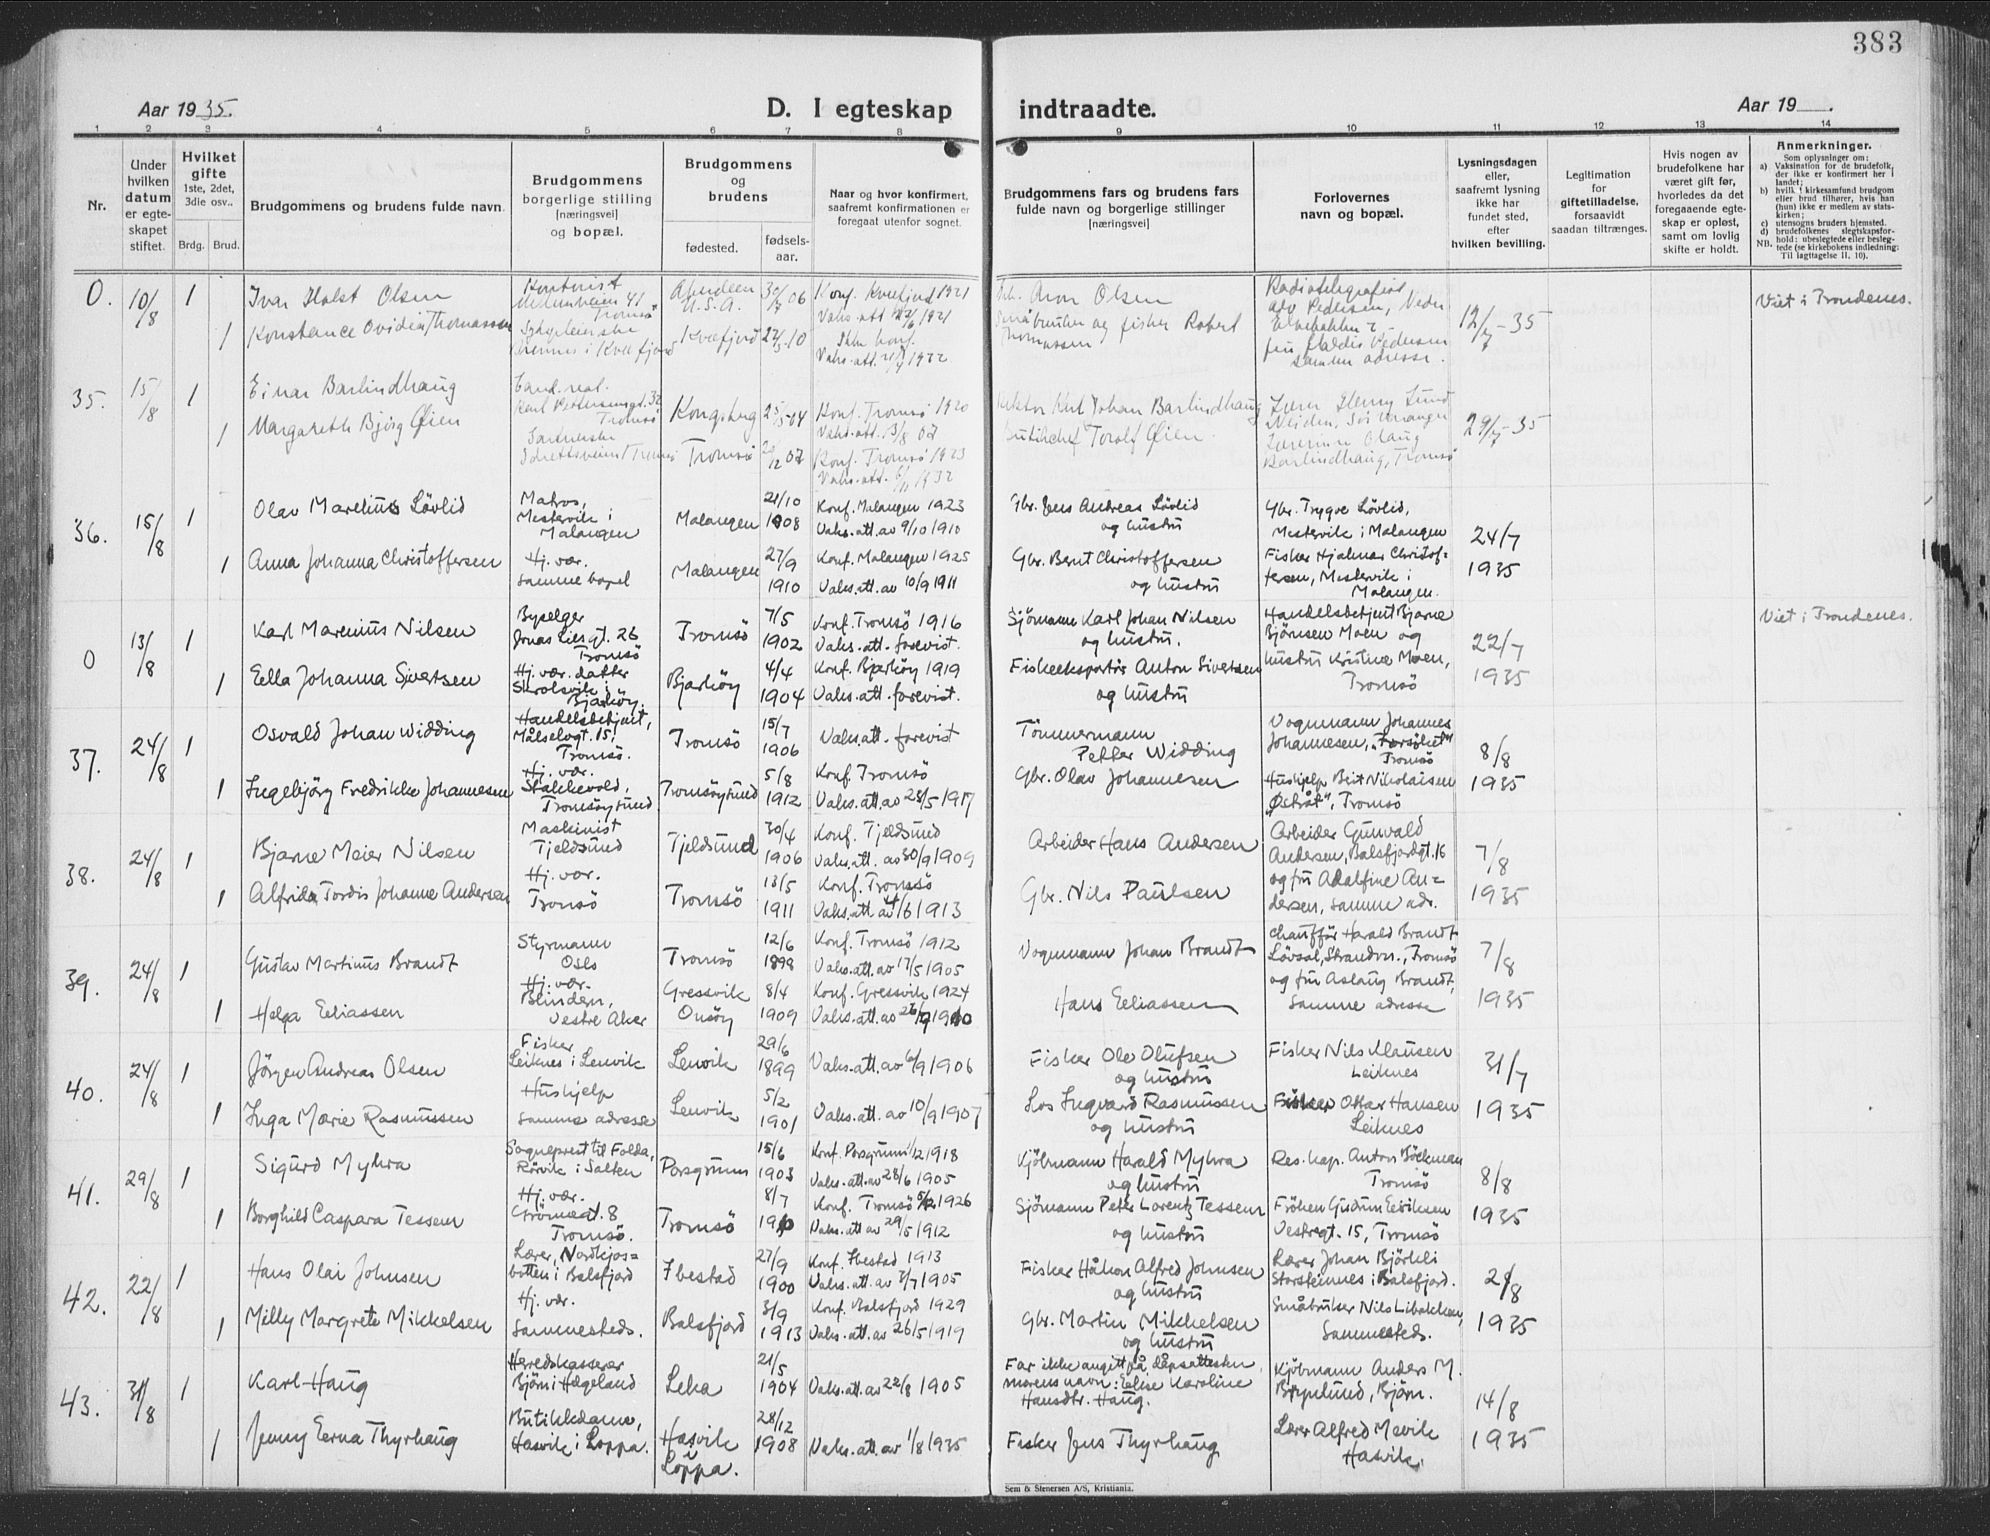 383
Aar 1935.
D. I egteskap indtraadte.
Aar 19   .
1 2 3 4 5 6 7 8 9 10 11 12 13 14
Nr.
Under hvilken datum er egteskapet stiftet.
Hvilket gifte
1ste, 2det, 3die osv..
Brdg. Brud.
Brudgommens og brudens fulde navn.
Brudgommens borgerlige stilling
[næringsvei]
og bopæl.
Brudgommens
og
brudens
fødested.
fødselsaar.
Naar og hvor konfirmert,
saafremt konfirmationen er
foregaat utenfor sognet.
Brudgommens fars og brudens fars
fulde navn og borgerlige stillinger
[næringsvei]
Forlovernes
navn og bopæl.
Lysningsdagen
eller,
saafremt lysning
ikke har
fundet sted,
efter
hvilken bevilling.
Legitimation
for
giftetilladelse,
forsaavidt
saadan tiltrænges.
Hvis nogen av
brudefolkene har
været gift før,
hvorledes da det
foregaaende egteskap er opløst,
samt om lovlig
skifte er holdt.
Anmerkninger.
Som oplysninger om:
a) Vaksination for de brudefolk, der ikke er konfirmert her i landet;
b) hvilk. kirkesamfund brudgom eller brud tilhører, hvis han (hun) ikke er medlem av statskirken;
c) utensogns bruders hjemsted.
d) brudefolkenes slegtskapsforhold: ubeslegtede eller beslegtede (se kirkebokens indledning:
NB. Til Iagttagelse II, 10).
0. 10/8 1 Ivar Holst Olsen
Kontorist
Tromsö
Aberdeen
U.S.A.
30/7 06
Konf. Kvæfjord 1921
Arne Olsen
Radiotelegrafist
12/7-35
Viet i Trondenes.
1 Konstance Ovidia Thomassen
Sykepleierske
Kvæfjord
10
Ikke konf.
Småbruker og fisker Robert
Thomassen
Samme adresse.
35. 15/8 1 Einar Barlindhaug
Cand. real.
Tromsö
Kongsberg
04
Konf. Tromsö 1920
Vaks. att. 13/8 07
Rektor Karl Johan Barlindhaug
29/7-35
1 Margareth Bjørg Øien
Tromsö
07
Konf. Tromsö 1923
Butikchef Toralf Øien.
Barlindhaug, Tromsö
36. 15/8 1 Olav Marelius Lövlid
Matros,
Mestervik i
Malangen
Malangen
21/10
1908
Konf. Malangen 1923
Vaks. att. av 9/10 1910
Gbr. Jens Andreas Lövlid
og hustru
Gbr. Trygve Lövlid,
Mestervik i Malangen
24/7
1935
1 Anna Johanna Christoffersen
Hj. vær.
samme bopel
Malangen
27/9
1910
Konf. Malangen 1925
Vaks. att. av 10/9 1911
Gbr. Bernt Christoffersen
og hustru
Fisker Hjalmar Christof=
fersen, Mestervik i
Malangen.
0 13/8 1 Karl Marenius Nilsen
Byselger
Jonas Liesgt. 26
Tromsö
Tromsö
7/5
1902
Konf. Tromsö 1916
Vaks. att. forevist.
Sjömann Karl Johan Nilsen
og hustru.
Handelsbetjent Bjarne
Bjørnsen Moen og
hustru Kristine Moen,
Tromsö
22/7
1935
Viet i Trondenes.
1 Ella Johanna Sivertsen
Hj. vær. datter
Skrolsvik i
Bjarköy.
Bjarköy
4/4
1904
Konf. Bjarköy 1919
Vaks. att. forevist.
Fiskeeksportör Anton Sivertsen
og hustru
37. 24/8 1 Osvald Johan Widding
Handelsbetjent,
Målselvgt. 15,
Tromsö.
Tromsö
15/7
1906
Vaks. att. forevist
Tömmermann
Petter Widding
Vognmann Johannes
Johannesen, "Forsöket"
Tromsö
8/8
1935
1 Ingebjörg Fredrikke Johannesen
Hj. vær.
Stakkevold,
Tromsöysund
Tromsöysund
5/8
1912
Konf. Tromsö
Vaks. att. av 28/5 1917
Gbr. Olav Johannesen
Hushjelp Berit Nikolaisen
"Östråt", Tromsö
38. 24/8 1 Bjarne Meier Nilsen
Maskinist
Tjeldsund
Tjeldsund
30/4
1906
Konf. Tjeldsund
Vaks. att. av 30/9 1909
Arbeider Hans Andersen
Arbeider Gunvald
Andersen, Balsfjordgt. 16
og fru Adolfine An=
dersen, samme adr.
7/8
1935
1 Alfrida Tordis Johanne Andersen
Hj. vær.
Tromsö
Tromsö
13/5
1911
Konf. Tromsö
Vaks. att. av 1/6 1913
Gbr. Nils Paulsen
39. 24/8 1 Gustav Martinus Brandt
Styrmann
Oslo
Tromsö
12/6
1898
Konf. Tromsö 1912
Vaks. att. av 17/5 1905
Vognmann Johan Brandt
Chauffør Harald Brandt
Lövsal, Strandvn., Tromsö
og fru Aslaug Brandt,
samme adresse
7/8
1935
1 Helga Eliassen
Hj. vær.
Blindern,
Vestre Aker
Gressvik
Onsöy
8/4
1909
Konf. Gressvik 1924
Vaks. att. av 26/9 1910
Hans Eliassen
40. 24/8 1 Jörgen Andreas Olsen
Fisker
Leiknes i Lenvik
Lenvik
29/6
1899
Vaks. att. av 6/9 1906
Fisker Ole Olufsen
og hustru
Fisker Nils Klausen
Leiknes
31/7
1935
1 Inga Marie Rasmussen
Hushjelp
samme adresse
Lenvik
5/2
1901
Vaks. att. av 10/9 1907
Los Ingvard Rasmussen
og hustru
Fisker Ottar Hansen
Leiknes
41. 29/8 1 Sigurd Myhra
Sogneprest til Folda,
Rørvik i Salten
Porsgrunn
15/6
1903
Konf. Porsgrunn 1/12 1918
Vaks. att. av 28/6 1905
Kjöbmann Harald Myhra
og hustru
Res. kap. Anton Böckman
Tromsö
8/8
1935
1 Borghild Caspara Tessem
Hj. vær.
Grönnegt. 8
Tromsö.
Tromsö
8/7
1910
Konf. Tromsö 5/12 1926
Vaks. att. av 29/5 1912
Sjömann Peter Lorentz Tessem
og hustru
Fröken Gudrun Eriksen
Vestregt. 15, Tromsö
42. 22/8 1 Hans Olai Johnsen
Lærer, Nordkjos=
botten i Balsfjord
Ibestad
27/9
1900
Konf. Ibestad 1913
Vaks. att. av 7/7 1905
Fisker Håkon Alfred Johnsen
og hustru
Lærer Johan Björkli
Storsteinnes i Balsfjord.
1935
1 Milly Margrete Mikkelsen
Hj. vær.
sammesteds.
Balsfjord
3/9
1913
Konf. Balsfjord 1929
Vaks. att. av 26/5 1919
Gbr. Martin Mikkelsen
og hustru
Småbruker Nils Libakken,
sammesteds.
43. 31/8 1 Karl Haug
Herredskasserer
Björn i Hægeland
Leka
21/5
1904
Vaks. att. av 22/8 1905
Far ikke angitt på dåpsattesten
morens navn: Elise Karoline
Hansdtr. Haug.
Kjöbmann Anders M.
Brynlund, Björn.
14/8
1935
1 Jenny Erna Thyrhaug
Butikkdame,
Hasvik i Loppa.
Hasvik
i
Loppa.
28/12
1908
Vaks. att. av 1/8 1935
Fisker Jens Thyrhaug
Lærer Alfred Mevik
Hasvik.
Sem & Stenersen A/S, Kristiania.